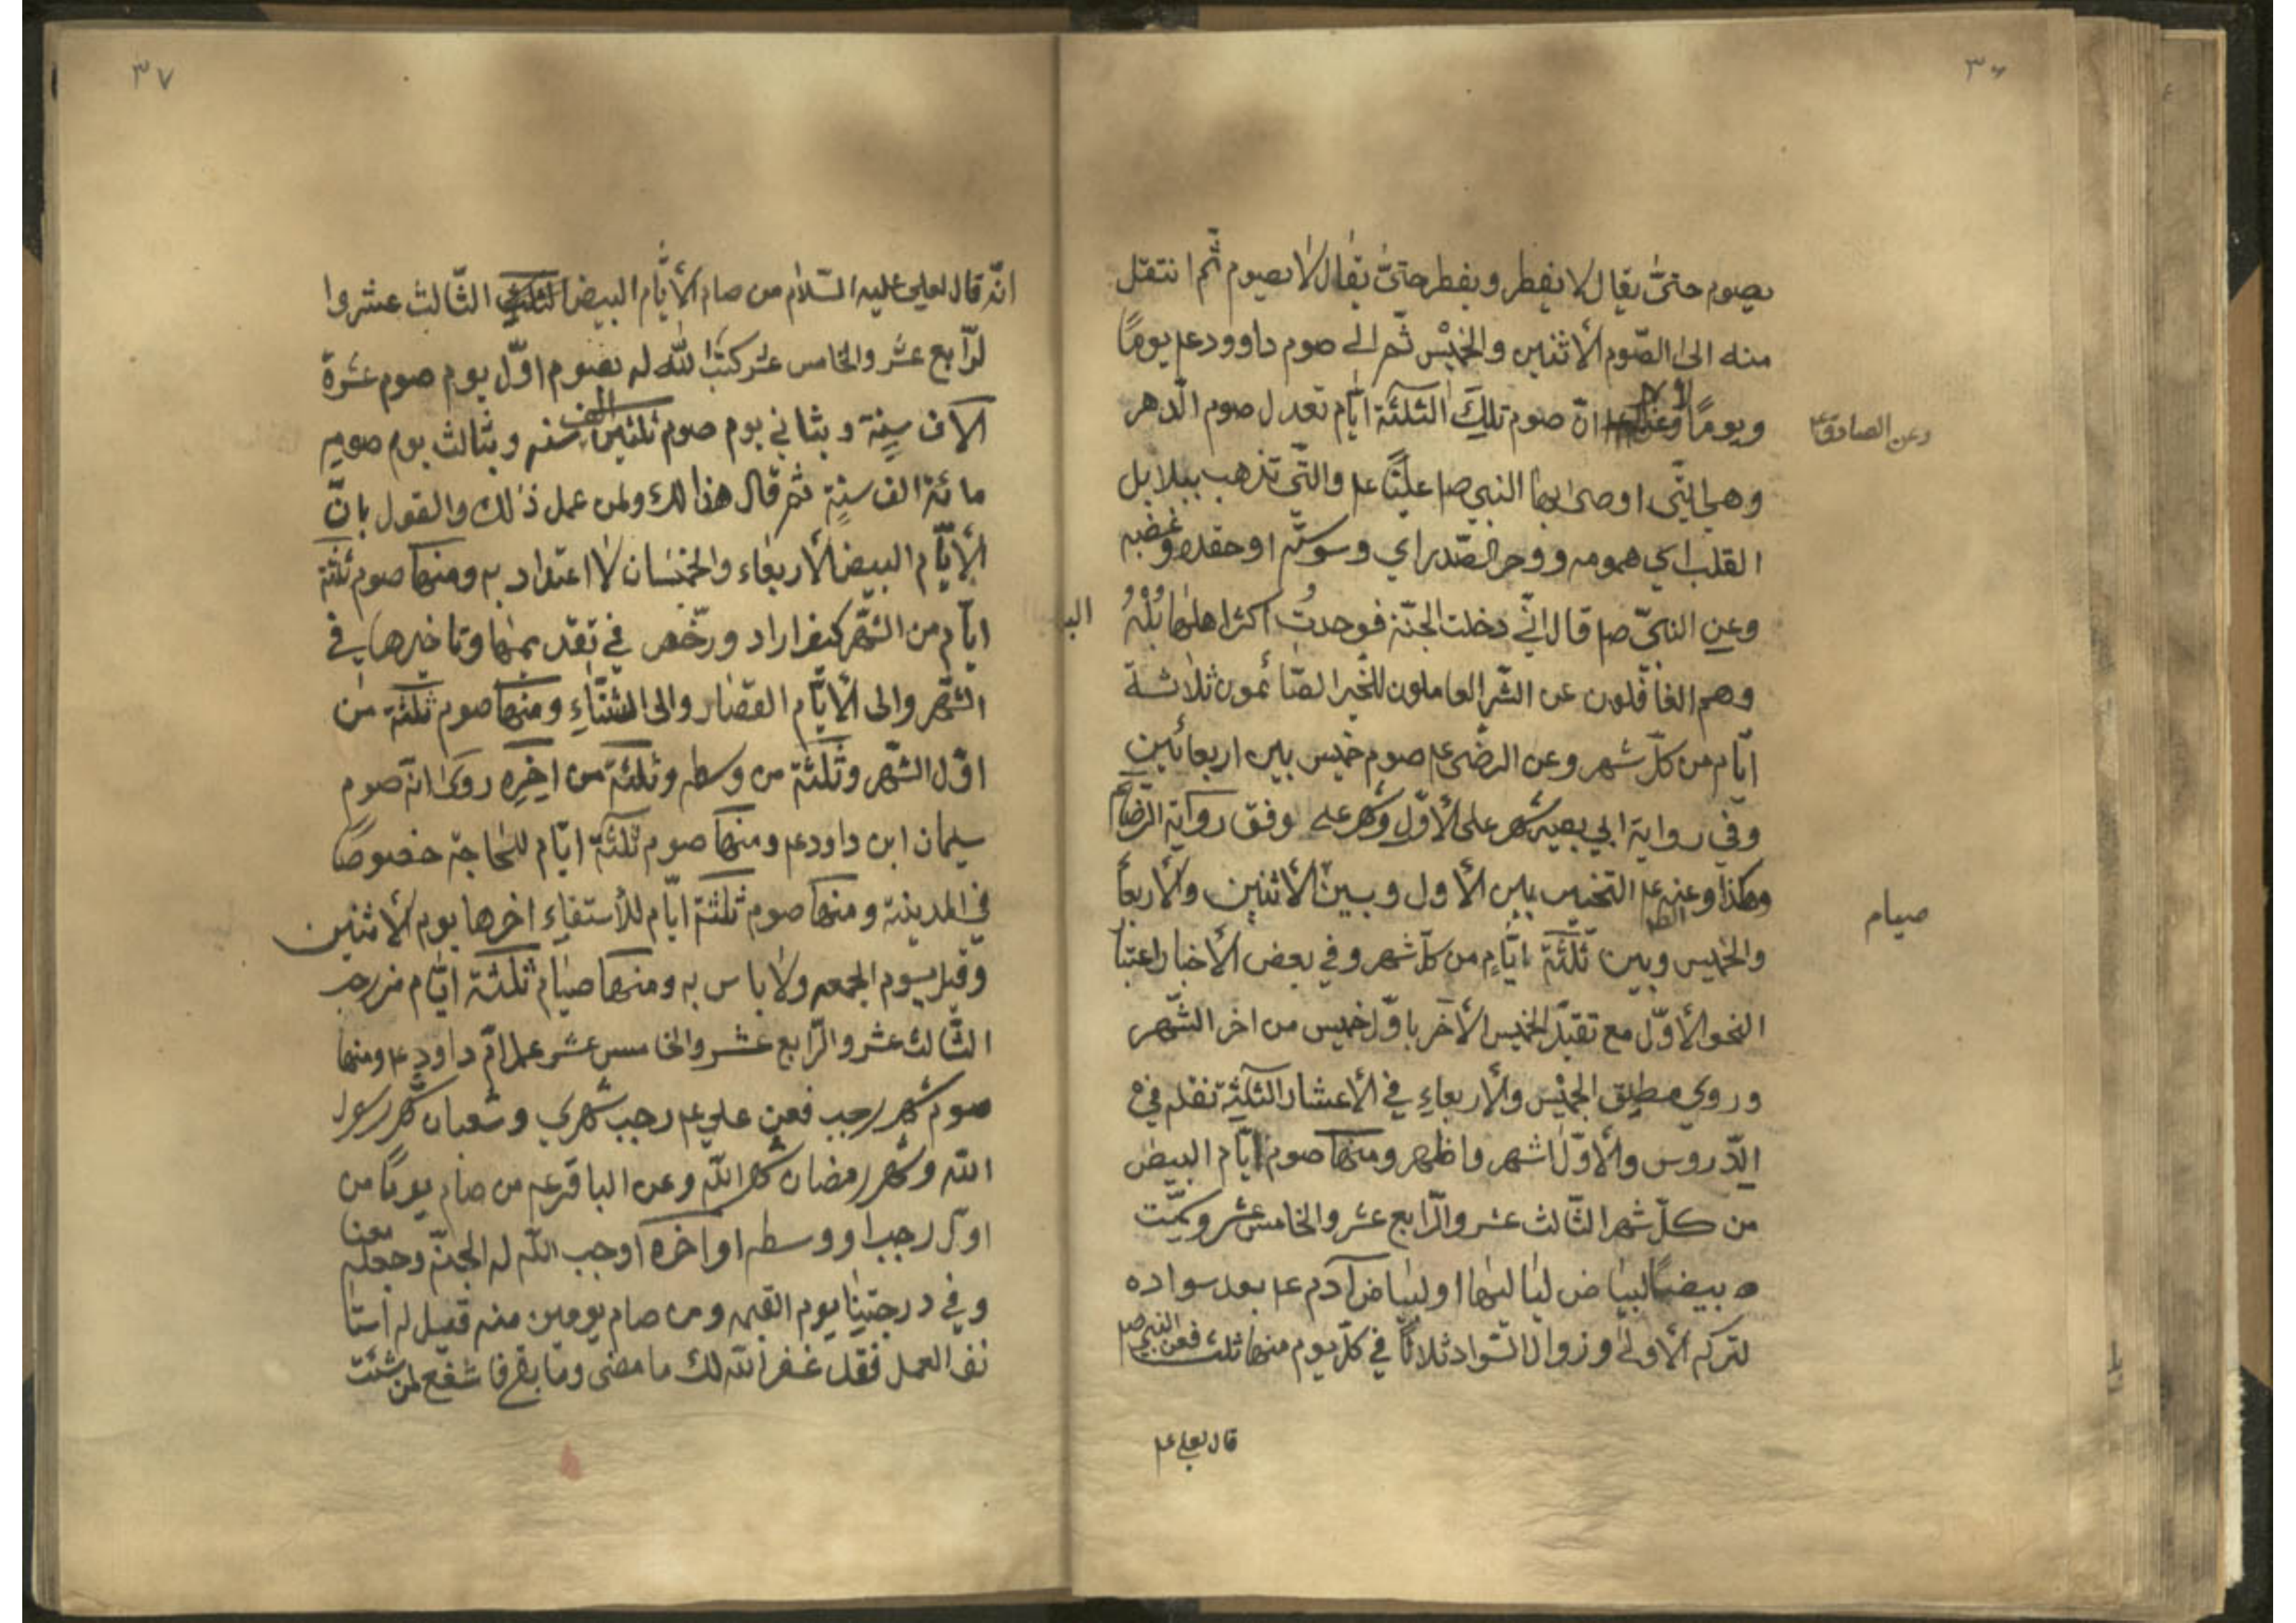 ٣٦
يصوم حتىّ يقال لا يفطر ويفطر حتىّ يقال لا يصوم ثمّ انتقل
منه الى الصّوم الأثنين والخميس ثمّ الى صوم داوود عم يومًا
ويومًا لا انّ صوم تلك الثلثة ايّام تعدل صوم الدّهر
وعن الصادق ع
وهي الّتي اوصى بها النبي ص عليًّا عم والتّي تذهب ببلابل
القلب اي همومه ووحر الصّدر اي وسوسته او حقده وغضبه
وعن النبيّ ص قال انّي دخلت الجنّة فوجدت اكثر اهلها بُلْهُ
وهم الغافلون عن الشّر العاملون للخير الصّائمون ثلاثة
ايّام من كلّ شهر وعن الرضى عم صوم خميس بين اربعائين
وفي رواية ابي بصير شهر على الأوّل وشهر على وفق رواية الرّضا عم
وهكذا وعنه عم التخيير بين الأول وبين الأثنين والأربعا
صيام
والخميس وبين ثلثة ايّام من كلّ شهر وفي بعض الأخبار اعتبا
النحو الأوّل مع تقيّد الخميس الأخر باوّل خميس من اخر الشّهر
وروي مطلق الخميس والأربعاءِ في الأعشار الثلثة نقله في
الدّروس والأوّل اشهر واظهر ومنها صوم ايّام البيض
من كلّ شهر الثّالث عشر والرّابع عشر والخامس عشر وسمّيت
ه بيضًا لبياض لياليها او لبياض آدم عم بعد سواده
لتركه الأولى وزوال السّواد ثلاثًا في كلّ يوم منها ثلث فعن النبي ص
قال لعلي عم
٣٧
انّه قال لعلي عليه السّلام من صام الأيّام البيض الثلث الثّالث عشر وا
لرّابع عشر والخامس عشر كتب الله له بصوم اوّل يوم صوم عشرة
الاف سنة وبثاني يوم صوم ثلثين الف سنه وبثالث يوم صوم
مائة الف سنةٍ ثم قال هذا لك ولمن عمل ذلك والقول بانّ
الأيّام البيض الأربعاء والخميسان لا اعتداد به ومنها صوم ثلثة
ايام من الشّهر كيف اراد ورخّص في تقديمها وتاخيرها في
الشّهر والى الأيّام القصار والى الشتّاءِ ومنها صوم ثلثة من
اوّل الشّهر وثلثة من وسطه وثلثة من اخِرِه روى انّه صوم
سليمان ابن داود عم ومنها صوم ثلثة ايّام للحاجة خصوصًا
في المدينة ومنها صوم ثلثة ايّام للأستقاء اخرها يوم الأثنين
وقيل يوم الجمعه ولا باس به ومنها صيام ثلثة ايّام من رجب
الثّالث عشر والرّابع عشر والخامس عشر عمل امّ داود عم ومنها
صوم شهر رجب فعن علي عم رجب شهري وشعبان شهر رسول
الله وشهر رمضان شهر الله وعن الباقر عم من صام يومًا من
اوّل رجب او وسطه او اخره اوجب الله له الجنّة وجعله معنا
وفي درجتنا يوم القيمه ومن صام يومين منه قيل له استا
نف العمل فقد غفر الله لك ما مضى وما بقي فاشفع لمن شئت